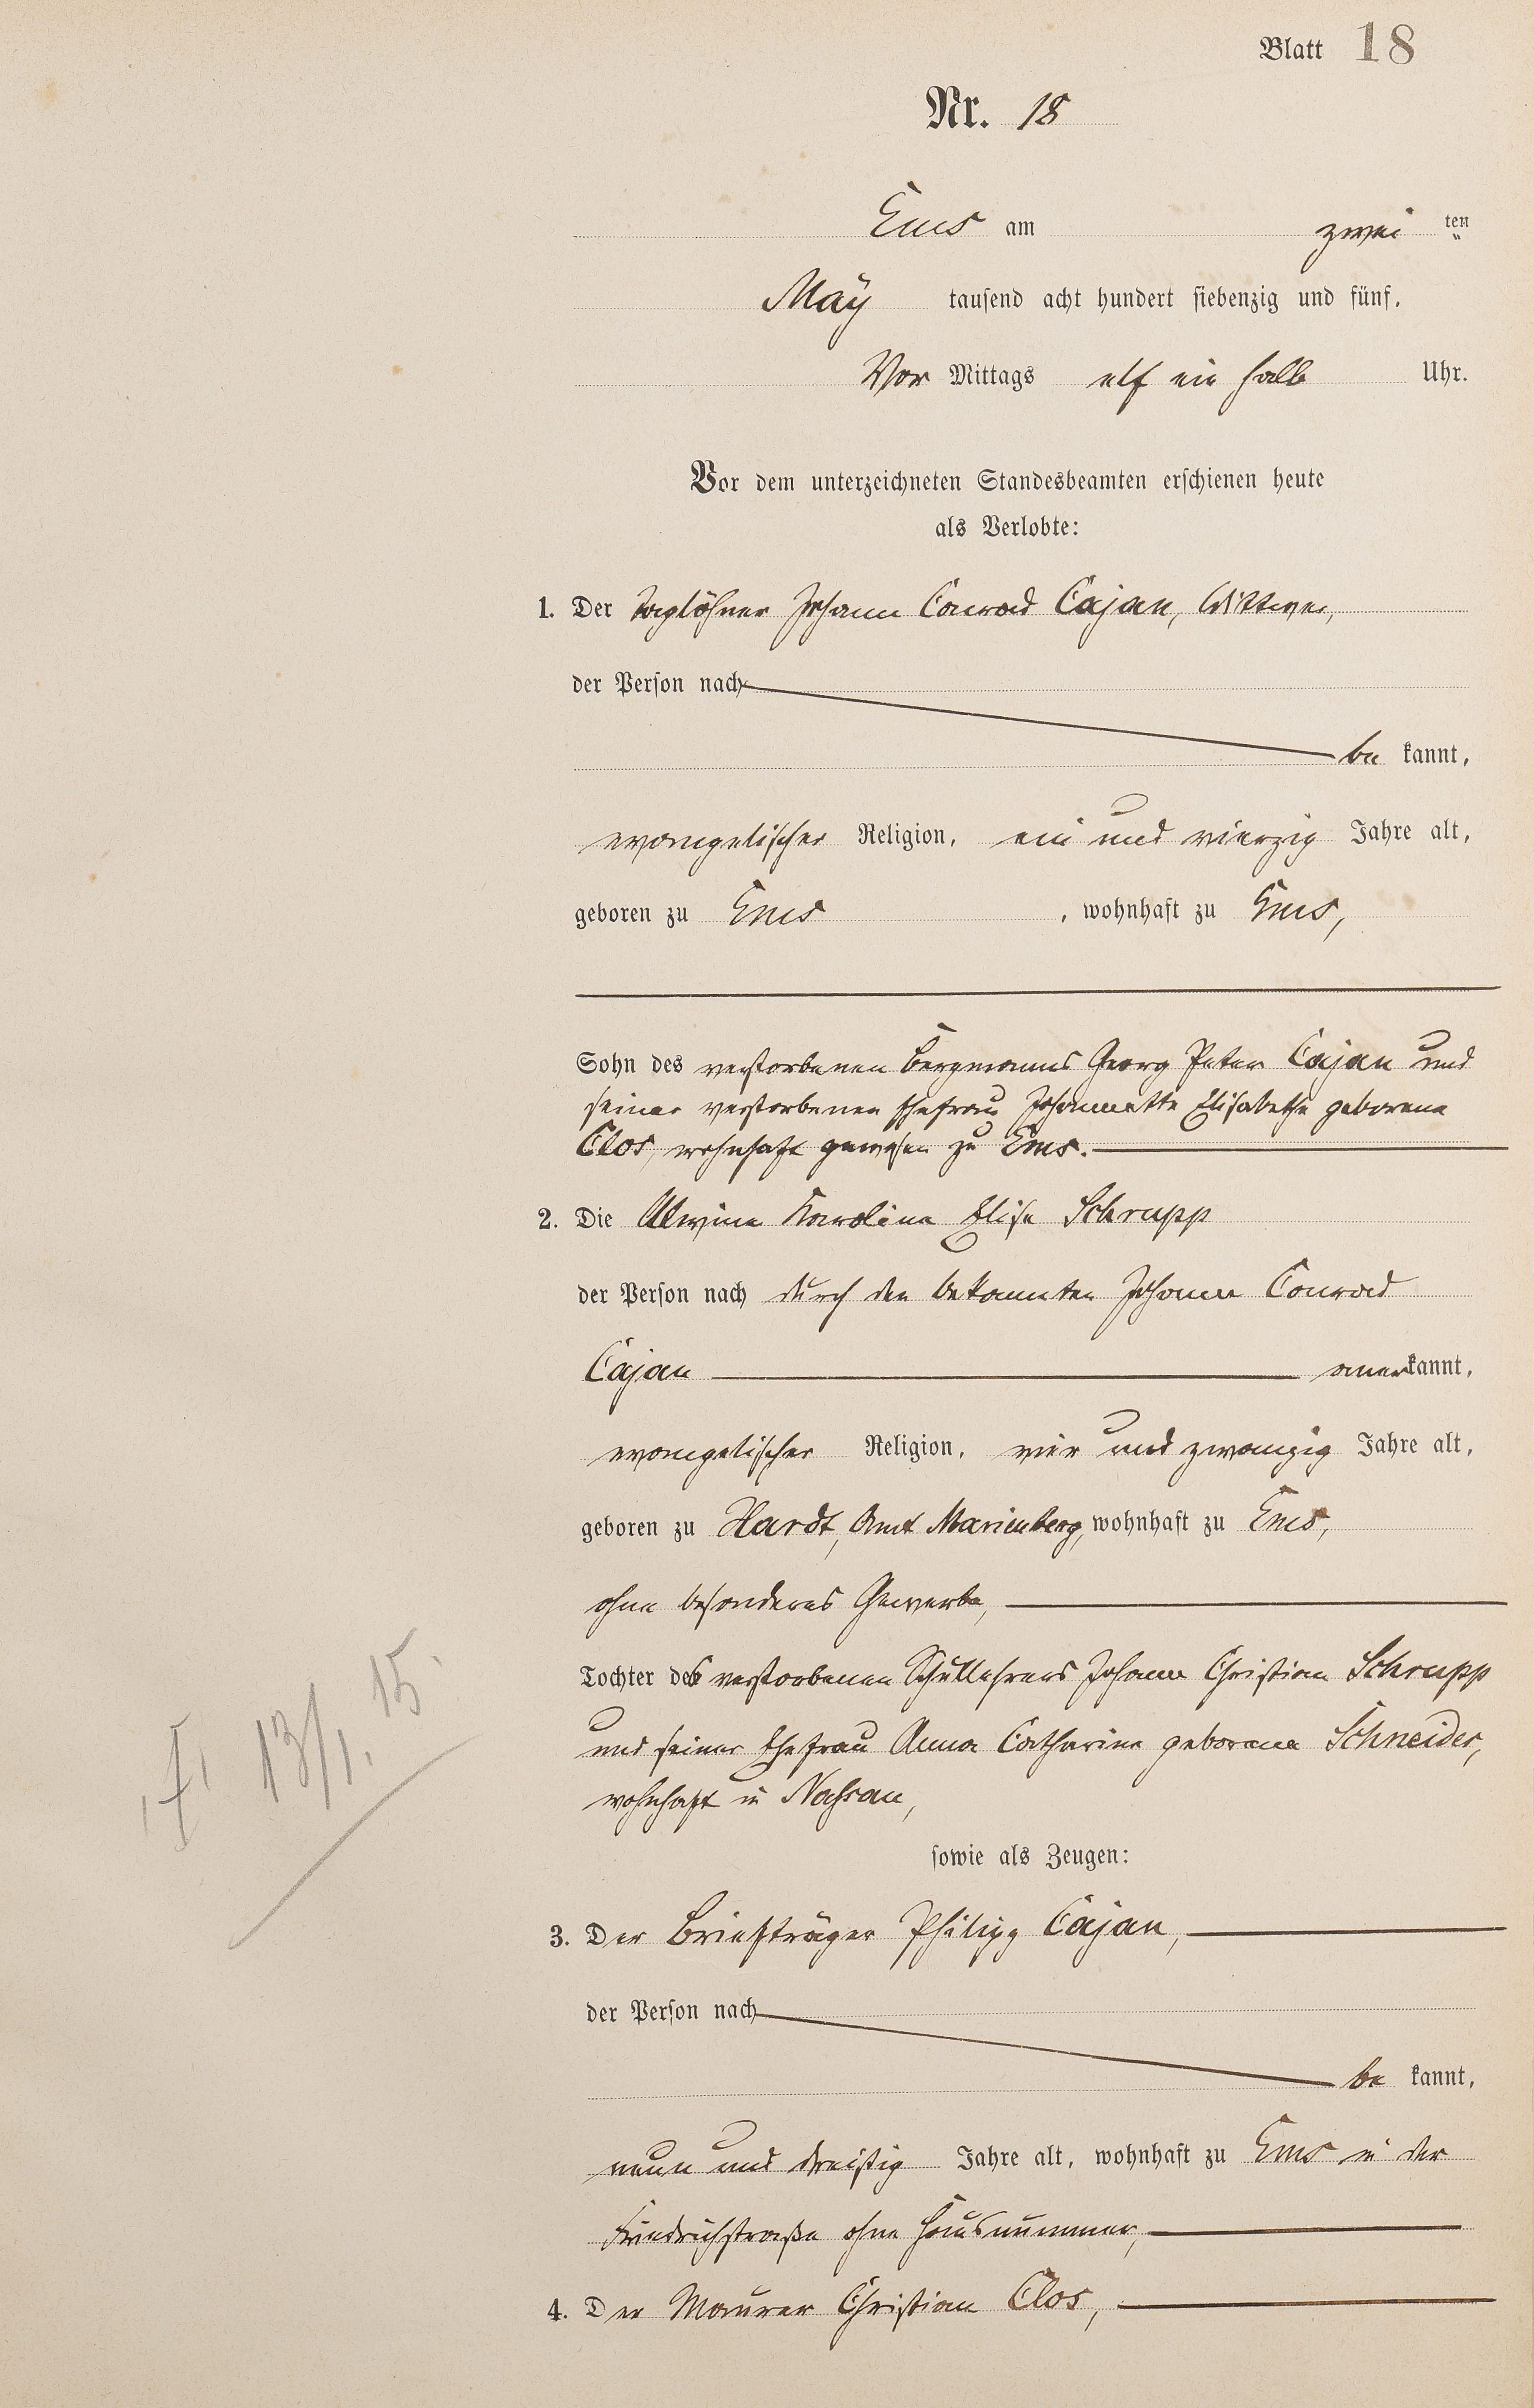 Blatt 18
Nr. 18
Ems am zwei ten
May tausend acht hundert siebenzig und fünf,
Vor Mittags elf ein halb Uhr.
Vor dem unterzeichneten Standesbeamten erschienen heute
als Verlobte:
1. Der Taglöhner Johann Conrad Cajan, Wittwer,
der Person nach
be kannt,
evangelischer Religion, ein und vierzig Jahre alt,
geboren zu Ems, wohnhaft zu Ems,
Sohn des verstorbenen Bergmanns Georg Peter Cajan und
seiner verstorbenen Ehefrau Johannette Elisabethe geborene
Clos, wohnhaft gewesen zu Ems.
2. Die Alwine Karoline Elise Schrupp
der Person nach durch den bekannten Johann Conrad
Cajan anerkannt,
evangelischer Religion, vier und zwanzig Jahre alt,
geboren zu Hardt, Amt Marienberg, wohnhaft zu Ems,
ohne besonderes Gewerbe,
Tochter des verstorbenen Schullehrers Johann Christian Schrupp
und seiner Ehefrau Anna Catharine geborene Schneider,
wohnhaft in Nassau,
sowie als Zeugen:
13/1. 15.
3. Der Briefträger Philipp Cajan,
der Person nach
be kannt,
neun und dreißig Jahre alt, wohnhaft zu Ems in der
Friedrichstraße ohne Hausnummer,
4. Der Maurer Christian Clos,